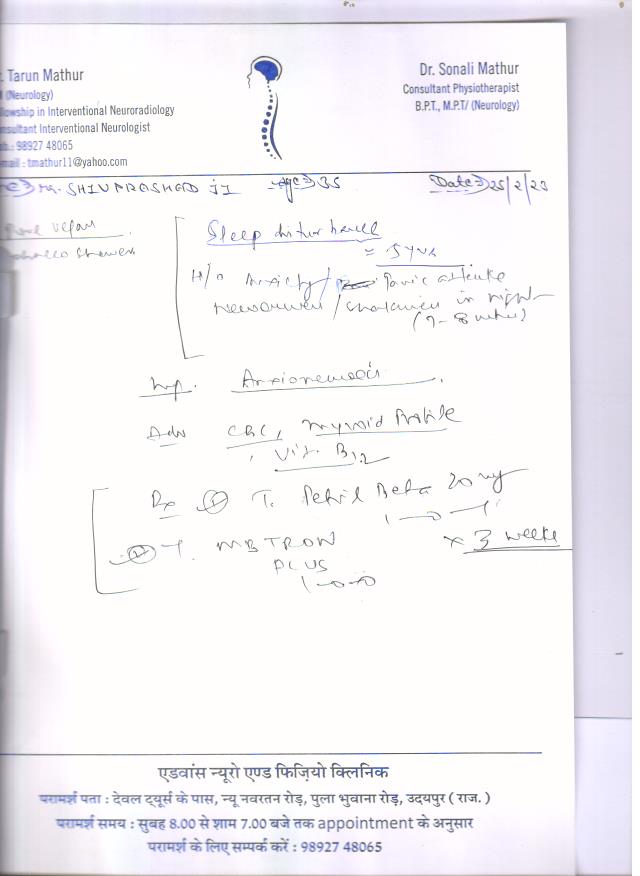 . Tarun Mathur
(Neurology)
llowship in Interventional Neuroradiology
nsultant Interventional Neurologist
ob.: 98927 48065
mail : tmathur11@yahoo.com
Dr. Sonali Mathur
Consultant Physiotherapist
B.P.T., M.P.T/ (Neurology)
Mr. SHIVPRASHAD JI Age 35 Date 25/2/23
Sleep
= 5 yrs
H/o Anxiety / Panic attacks
in night
(7-8
Imp.
Adv CBC, Thyroid Profile
, Vit. B12
Rx ① T. Petril Beta 20 mg
1-0-1
② T. MBTRON × 3 weeks
PLUS
1-0-0
एडवांस न्यूरो एण्ड फिज़ियो क्लिनिक
परामर्श पता : देवल ट्यूर्स के पास, न्यू नवरतन रोड़, पुला भुवाना रोड़, उदयपुर ( राज. )
परामर्श समय : सुबह 8.00 से शाम 7.00 बजे तक appointment के अनुसार
परामर्श के लिए सम्पर्क करें : 98927 48065